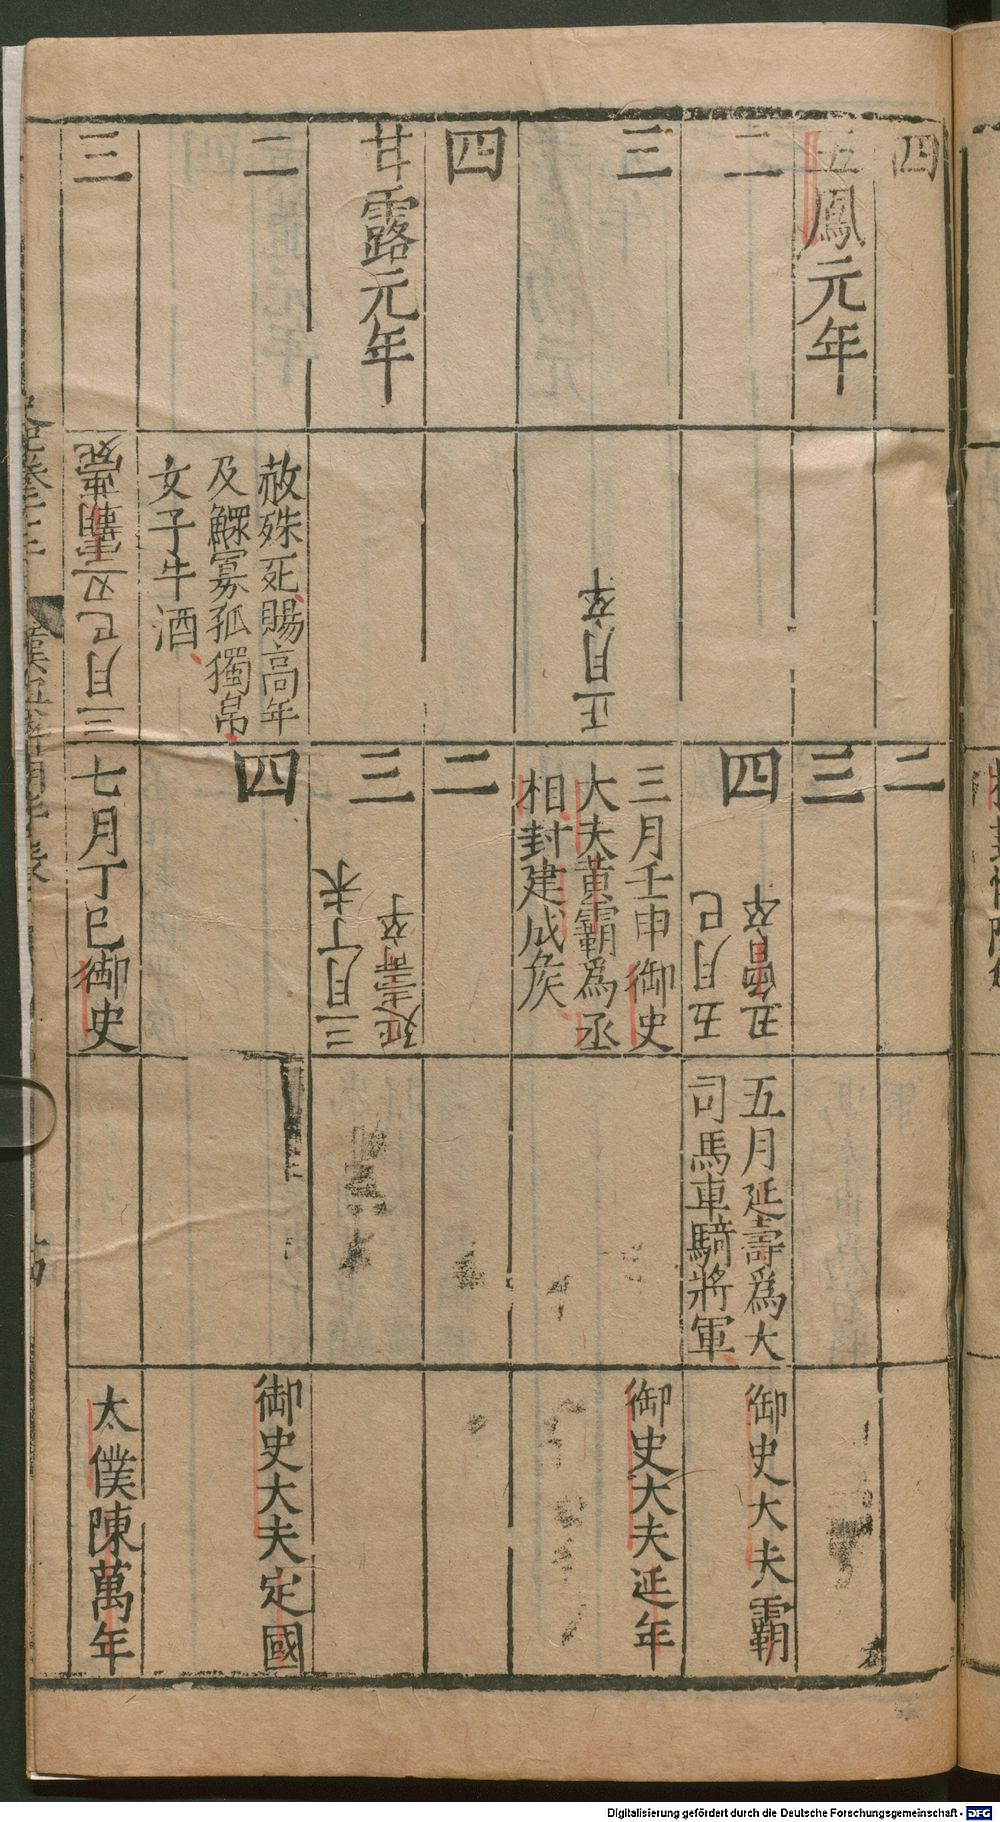 四
二
五鳳元年
三
二
四
五月己
丑曾卒
五月延壽爲大
司馬車騎將軍
御史大夫霸
三
正月卒
三月壬申御史
大夫黃霸爲丞
相封建成侯
御史大夫延年
四
二
甘露元年
三
三月丁未
延壽卒
二
赦殊死賜高年
及鰥寡孤獨帛
女子牛酒
四
御史大夫定國
三
三月己丑霸薨
七月丁巳御史
太僕陳萬年
Digitalisierung gefördert durch die Deutsche Forschungsgemeinschaft - DFG